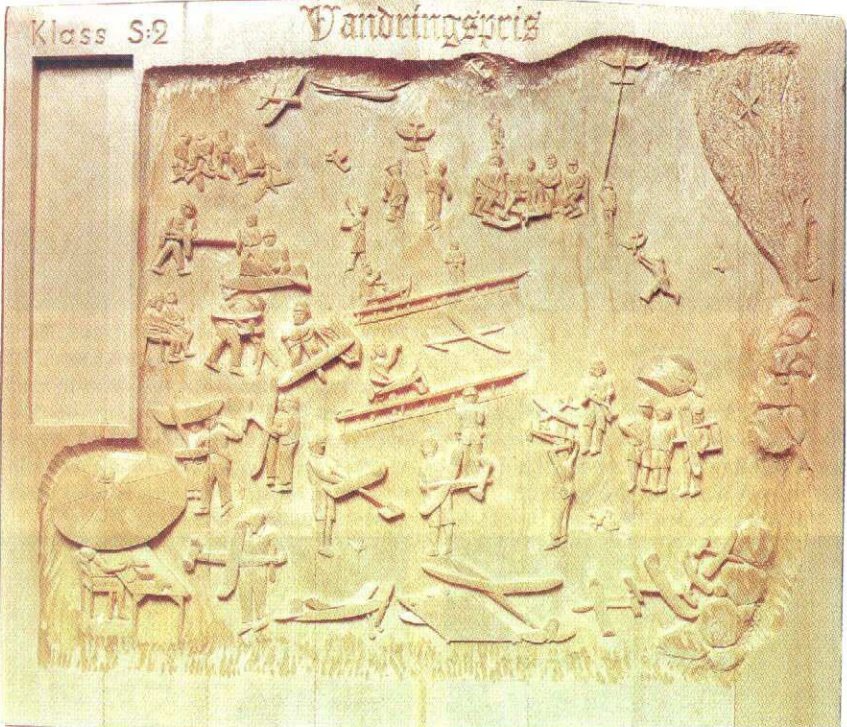 Klass S:2
Vandringspris